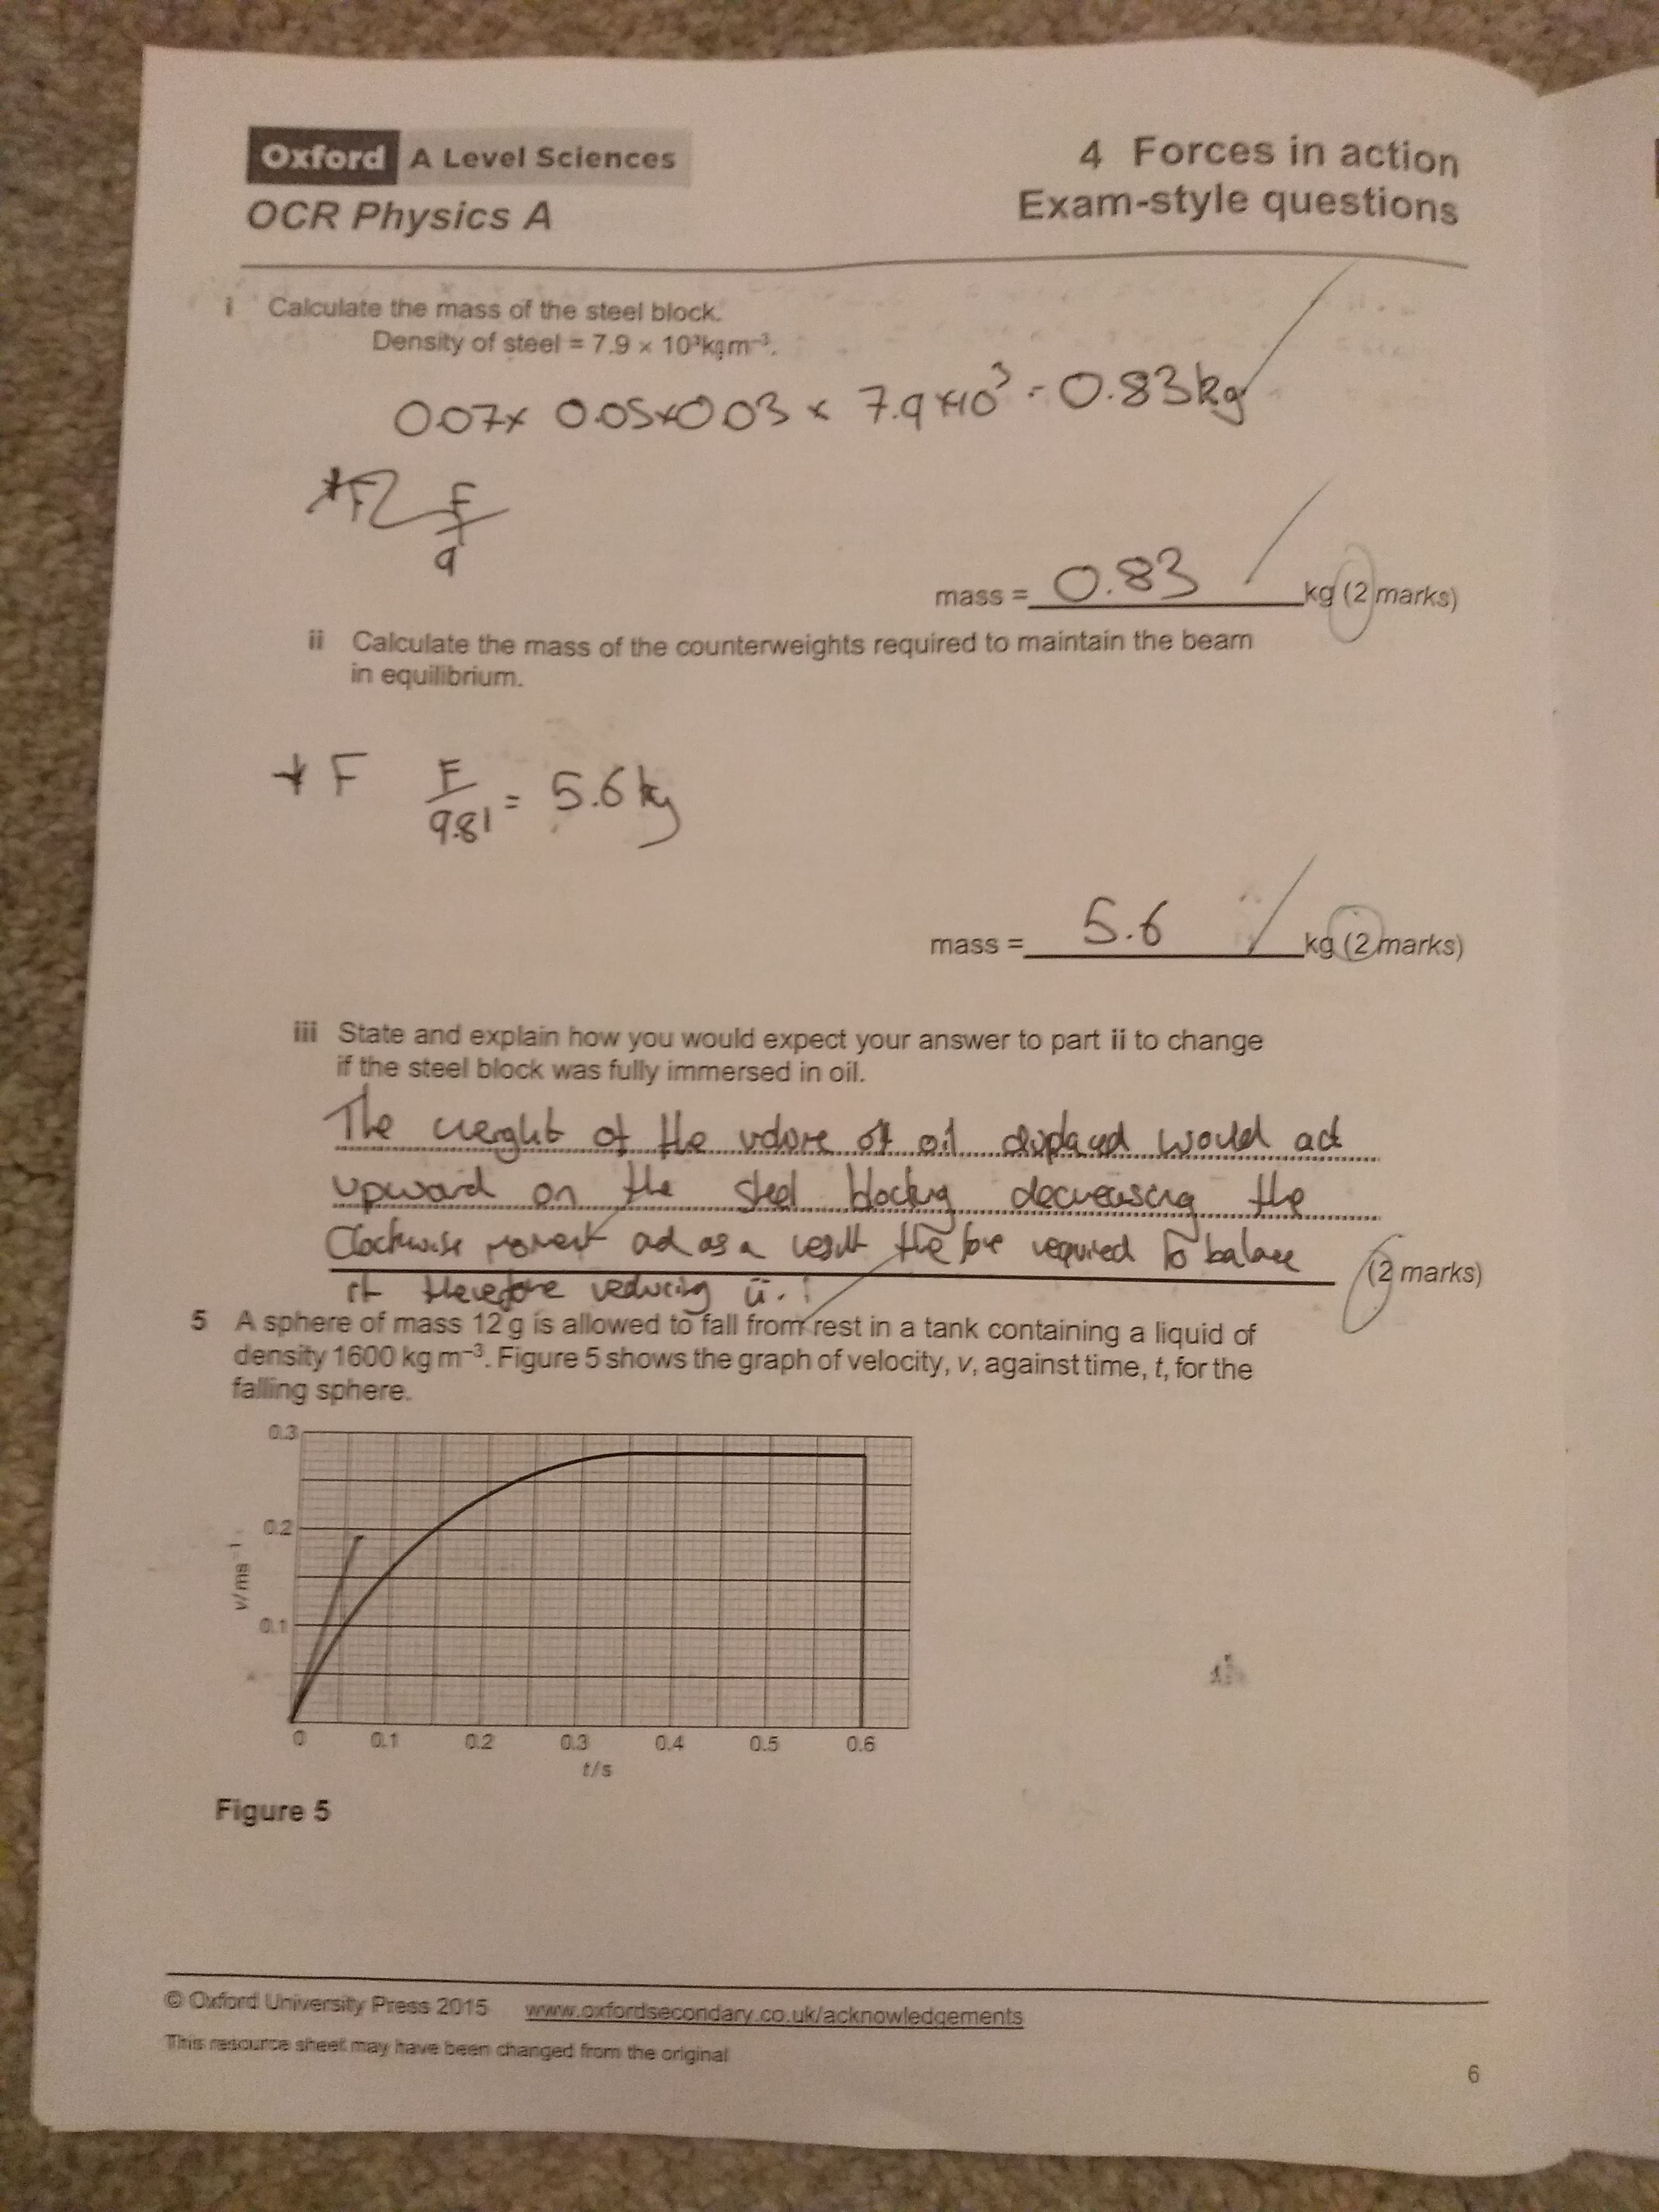 Oxford A Level Sciences
OCR Physics A
4 Forces in action
Exam-style questions
i Calculate the mass of the steel block.
Density of steel = 7.9 × 10³kg m⁻³.
0.07 × 0.05 × 0.03 × 7.9 × 10³ = 0.83kg
F
a
mass = 0.83 kg (2 marks)
ii Calculate the mass of the counterweights required to maintain the beam
in equilibrium.
F F/9.81 = 5.6 kg
mass = 5.6 kg (2 marks)
iii State and explain how you would expect your answer to part ii to change
if the steel block was fully immersed in oil.
The weight of the volume of oil displaced would act
upward on the steel decreasing the
Clockwise moment and as a result the force required to balance
(2 marks)
it therefore reducing ii.
5 A sphere of mass 12 g is allowed to fall from rest in a tank containing a liquid of
density 1600 kg m⁻³. Figure 5 shows the graph of velocity, v, against time, t, for the
falling sphere.
0.3
0.2
v/ms⁻¹
0.1
0 0.1 0.2 0.3 0.4 0.5 0.6
t/s
Figure 5
© Oxford University Press 2015 www.oxfordsecondary.co.uk/acknowledgements
This resource sheet may have been changed from the original
6